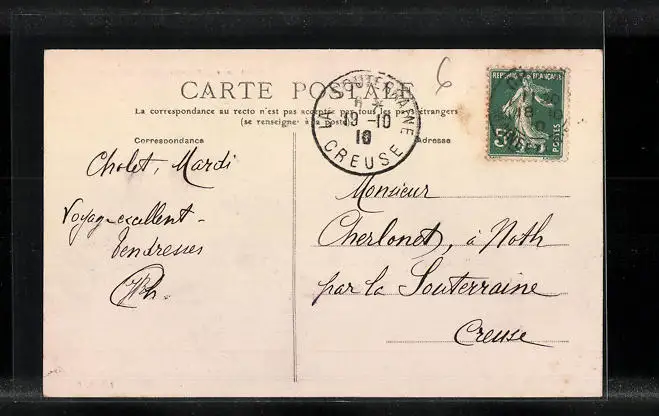 CARTE POSTALE
La correspondance au recto n'est pas acceptée par tous les pays étrangers
(se renseigner à la poste)
6
LA SOUTERRAINE
19 -10
10
CREUSE
REPUBLIQUE FRANÇAISE
5
POSTES
Correspondance
Adresse
Cholet, Mardi
Voyage excellent -
Tendresses
Monsieur
Cherlonet, à Noth
par la Souterraine
Creuse